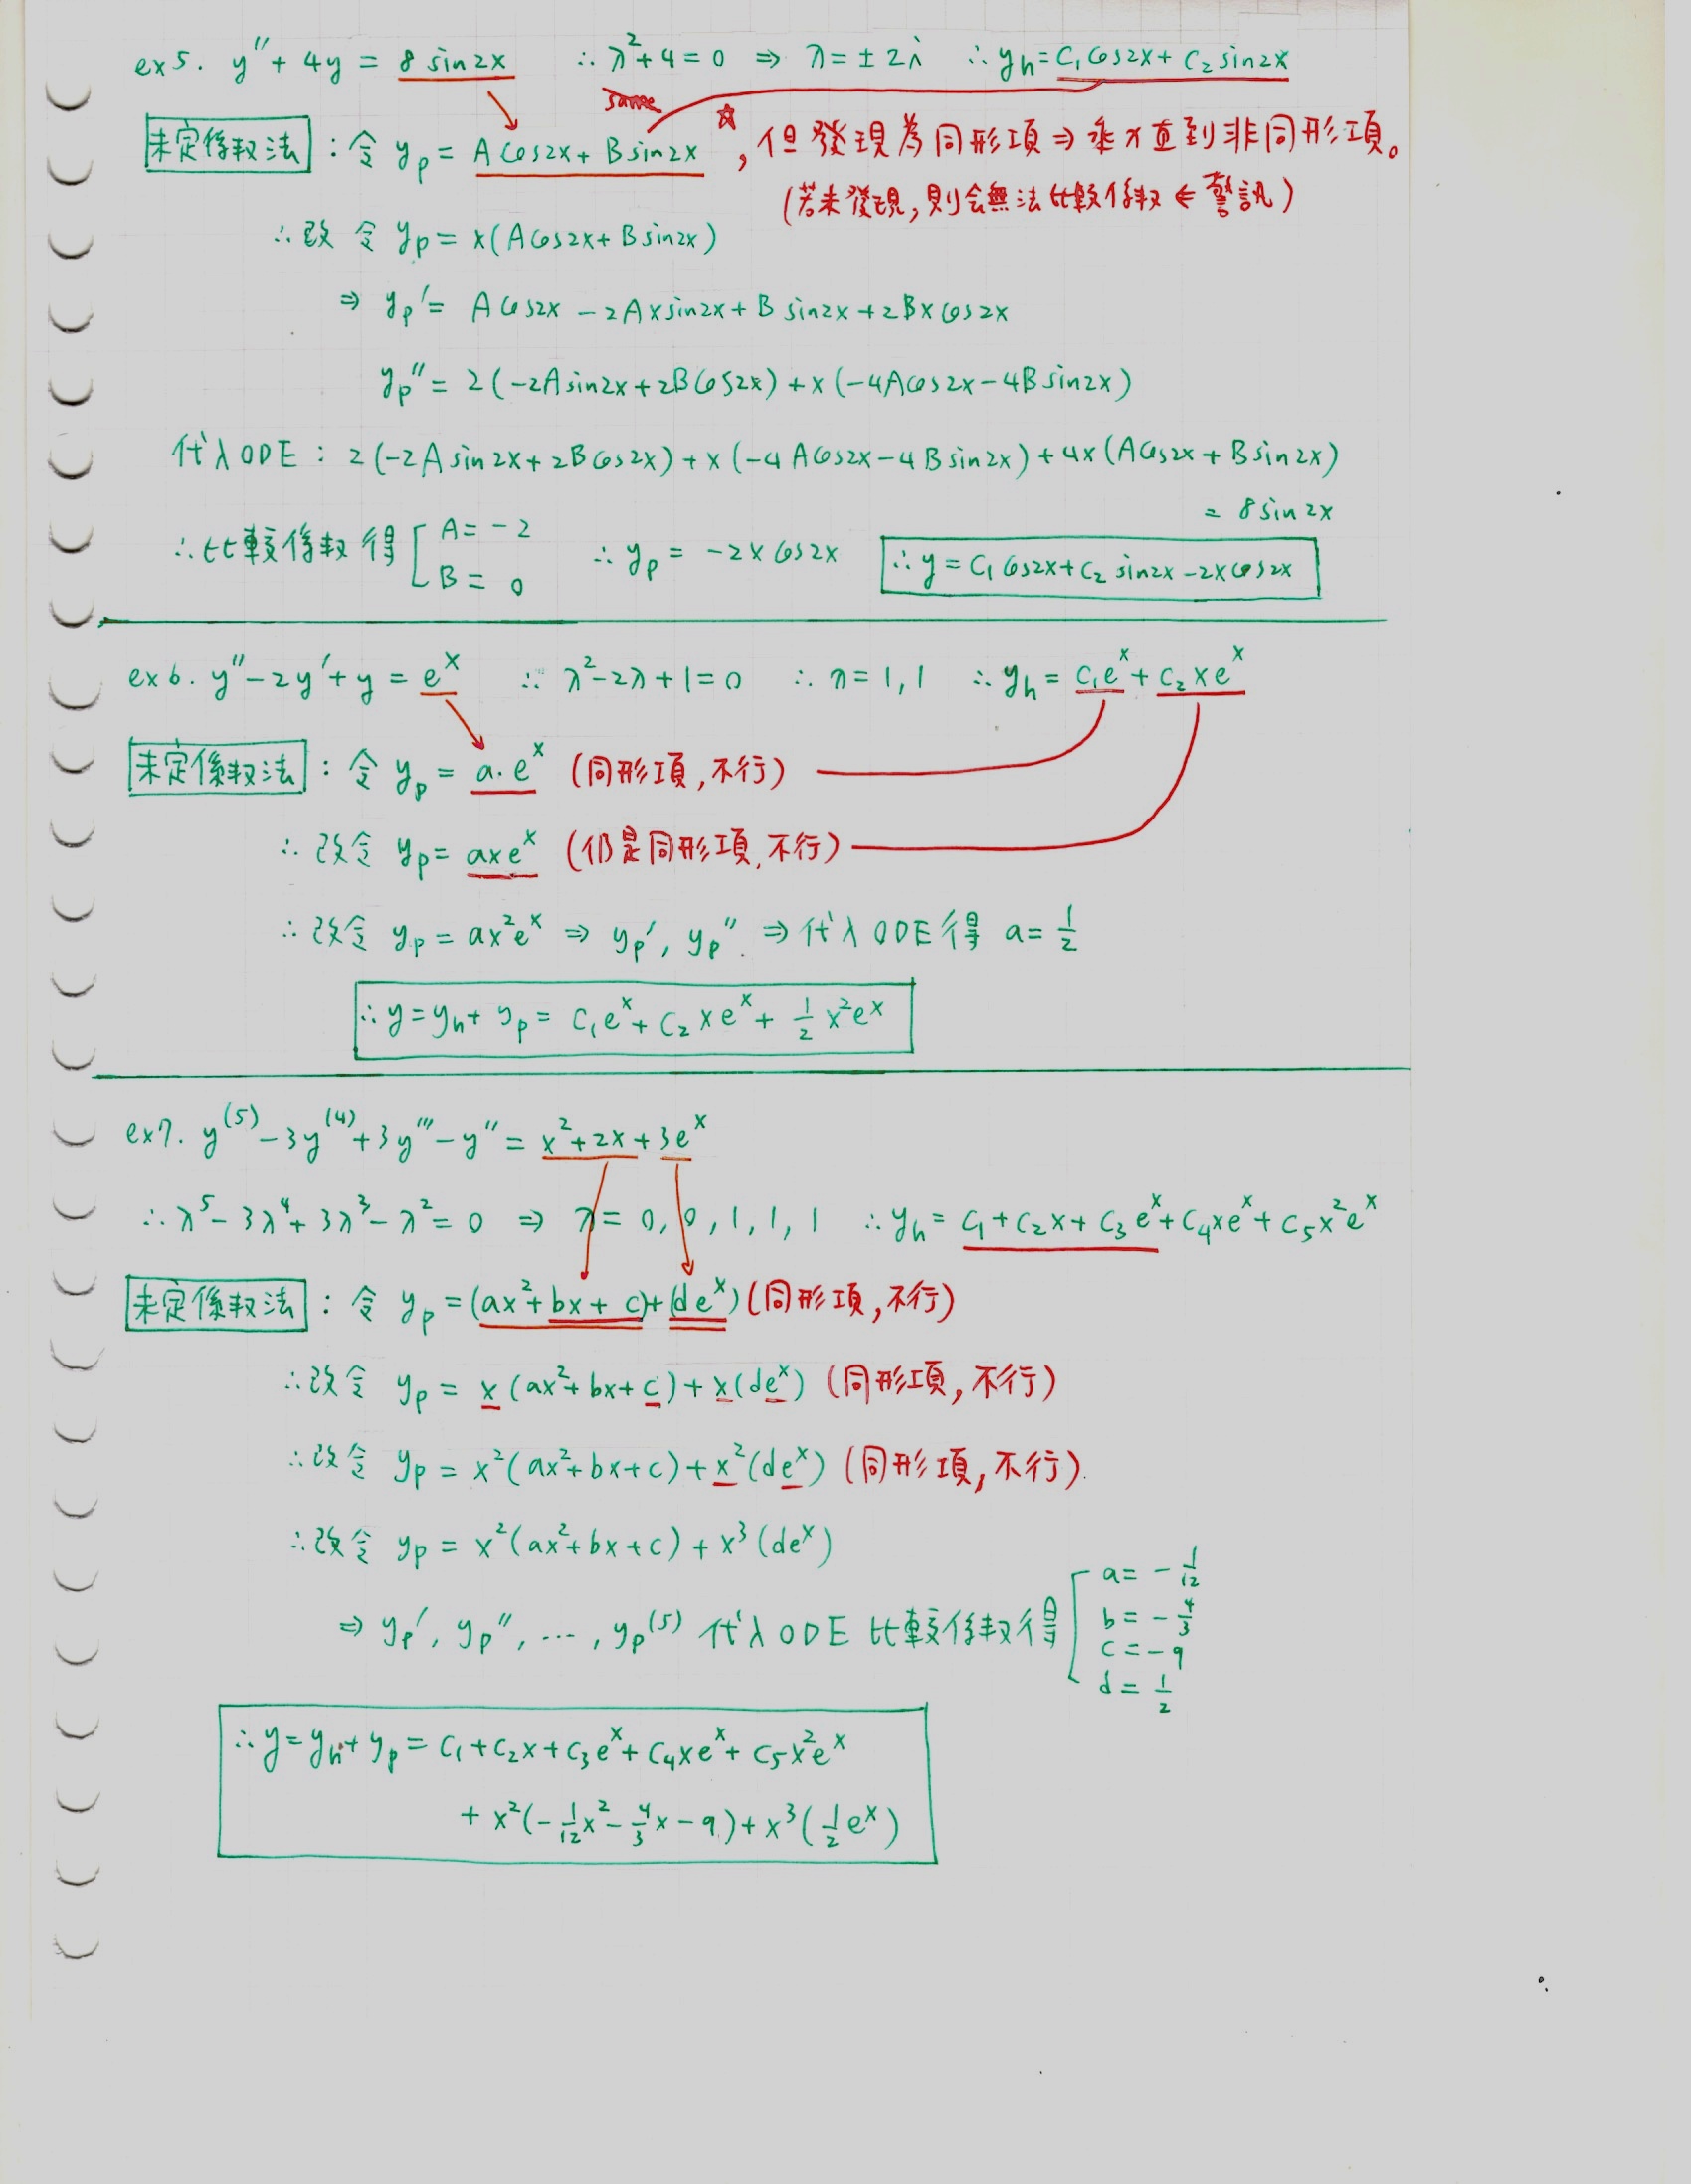 ex5. y″ + 4y = 8 sin2x ∴ λ²+4=0 ⇒ λ=±2i ∴ y_h = C₁cos2x + C₂sin2x
same
未定係數法 : 令 y_p = A cos2x + B sin2x ☆, 但發現為同形項 ⇒ 乘x直到非同形項。
(若未發現, 則會無法比較係數 ← 警訊)
∴ 改令 y_p = x(Acos2x + Bsin2x)
⇒ y_p′ = Acos2x − 2Axsin2x + Bsin2x + 2Bxcos2x
y_p″ = 2(−2Asin2x + 2Bcos2x) + x(−4Acos2x − 4Bsin2x)
代入ODE : 2(−2Asin2x + 2Bcos2x) + x(−4Acos2x − 4Bsin2x) + 4x(Acos2x + Bsin2x)
= 8sin2x
∴ 比較係數得 [ A = −2 B = 0 ∴ y_p = −2xcos2x ∴ y = C₁cos2x + C₂sin2x − 2xcos2x
ex6. y″ − 2y′ + y = e^x ∴ λ²−2λ+1=0 ∴ λ=1,1 ∴ y_h = C₁e^x + C₂xe^x
未定係數法 : 令 y_p = a·e^x (同形項,不行)
∴ 改令 y_p = axe^x (仍是同形項,不行)
∴ 改令 y_p = ax²e^x ⇒ y_p′, y_p″. ⇒ 代入ODE得 a = 1/2
∴ y = y_h + y_p = C₁e^x + C₂xe^x + 1/2 x²e^x
ex7. y^(5) − 3y^(4) + 3y‴ − y″ = x² + 2x + 3e^x
∴ λ⁵ − 3λ⁴ + 3λ³ − λ² = 0 ⇒ λ = 0, 0, 1, 1, 1 ∴ y_h = C₁ + C₂x + C₃e^x + C₄xe^x + C₅x²e^x
未定係數法 : 令 y_p = (ax² + bx + c) + (de^x) (同形項,不行)
∴ 改令 y_p = x(ax² + bx + c) + x(de^x) (同形項,不行)
∴ 改令 y_p = x²(ax² + bx + c) + x²(de^x) (同形項,不行)
∴ 改令 y_p = x²(ax² + bx + c) + x³(de^x)
⇒ y_p′, y_p″, ⋯, y_p^(5) 代入ODE 比較係數得 [ a = −1/12 b = −4/3 c = −9 d = 1/2
∴ y = y_h + y_p = C₁ + C₂x + C₃e^x + C₄xe^x + C₅x²e^x
+ x²(−1/12 x² − 4/3 x − 9) + x³(1/2 e^x)